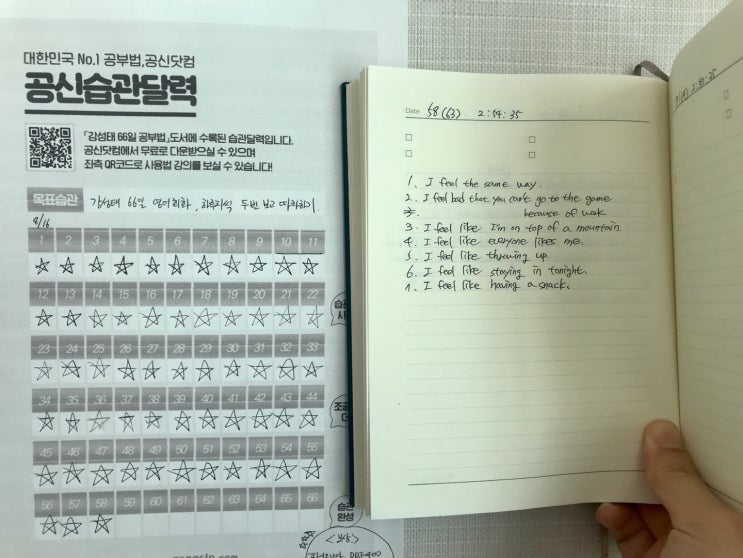 대한민국 No.1 공부법, 공신닷컴
공신습관달력
「강성태 66일 공부법」도서에 수록된 습관달력입니다.
공신닷컴에서 무료로 다운받으실 수 있으며
좌측 QR코드로 사용법 강의를 보실 수 있습니다!
목표습관 강성태 66일 영어회화, 하루지식 두번 보고 따라하기.
8/16
1 2 3 4 5 6 7 8 9 10 11
12 13 14 15 16 17 18 19 20 21 22
습관
시
23 24 25 26 27 28 29 30 31 32 33
34 35 36 37 38 39 40 41 42 43 44
조금
더
45 46 47 48 49 50 51 52 53 54 55
56 57 58 59 60 61 62 63 64 65 66
습관
완성
<보상>
Date 58(63) 2:54:35
1. I feel the same way.
2. I feel bad that you can't go to the game
because of work
3. I feel like I'm on top of a mountain.
4. I feel like everyone likes me.
5. I feel like throwing up.
6. I feel like staying in tonight.
7. I feel like having a snack.